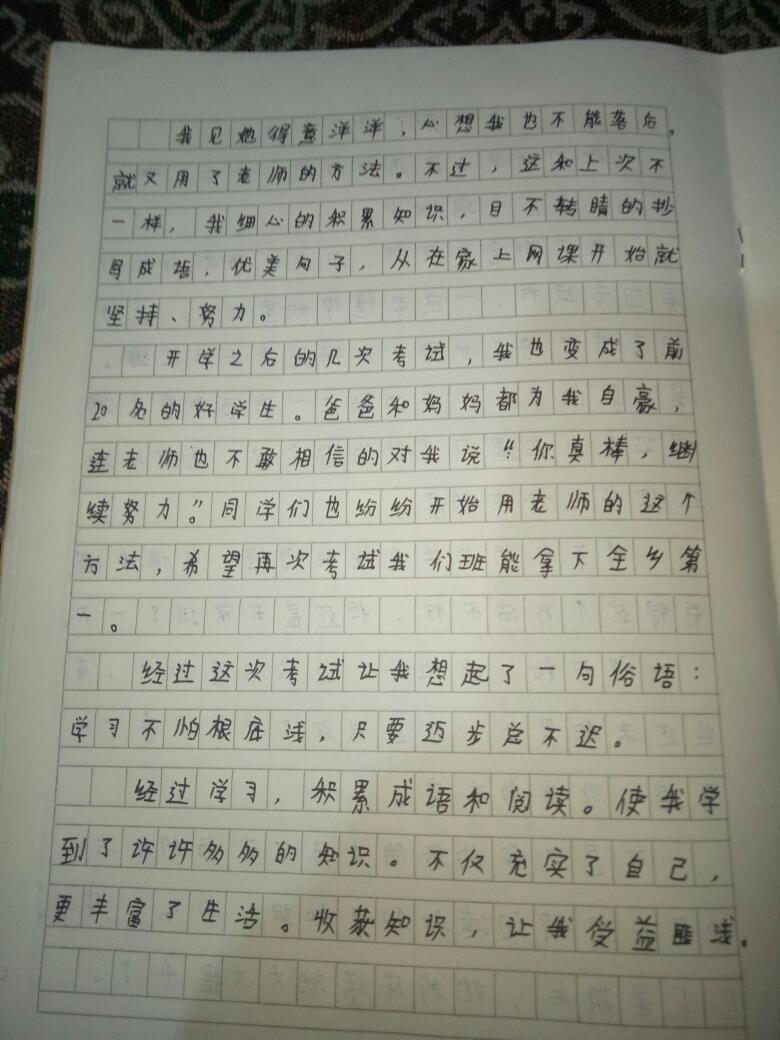 我见她得意洋洋，心想我也不能落后。
就又用了老师的方法。不过，这和上次不
一样，我细心的积累知识，目不转睛的抄
写成语，优美句子，从在家上网课开始就
坚持、努力。
开学之后的几次考试，我也变成了前
20名的好学生。爸爸和妈妈都为我自豪，
连老师也不敢相信的对我说“你真棒，继
续努力”。同学们也纷纷开始用老师的这个
方法，希望再次考试我们班能拿下全乡第
一。
经过这次考试让我想起了一句俗语：
学习不怕根底浅，只要迈步总不迟。
经过学习，积累成语和阅读。使我学
到了许许多多的知识。不仅充实了自己，
更丰富了生活。收获知识，让我受益匪浅。